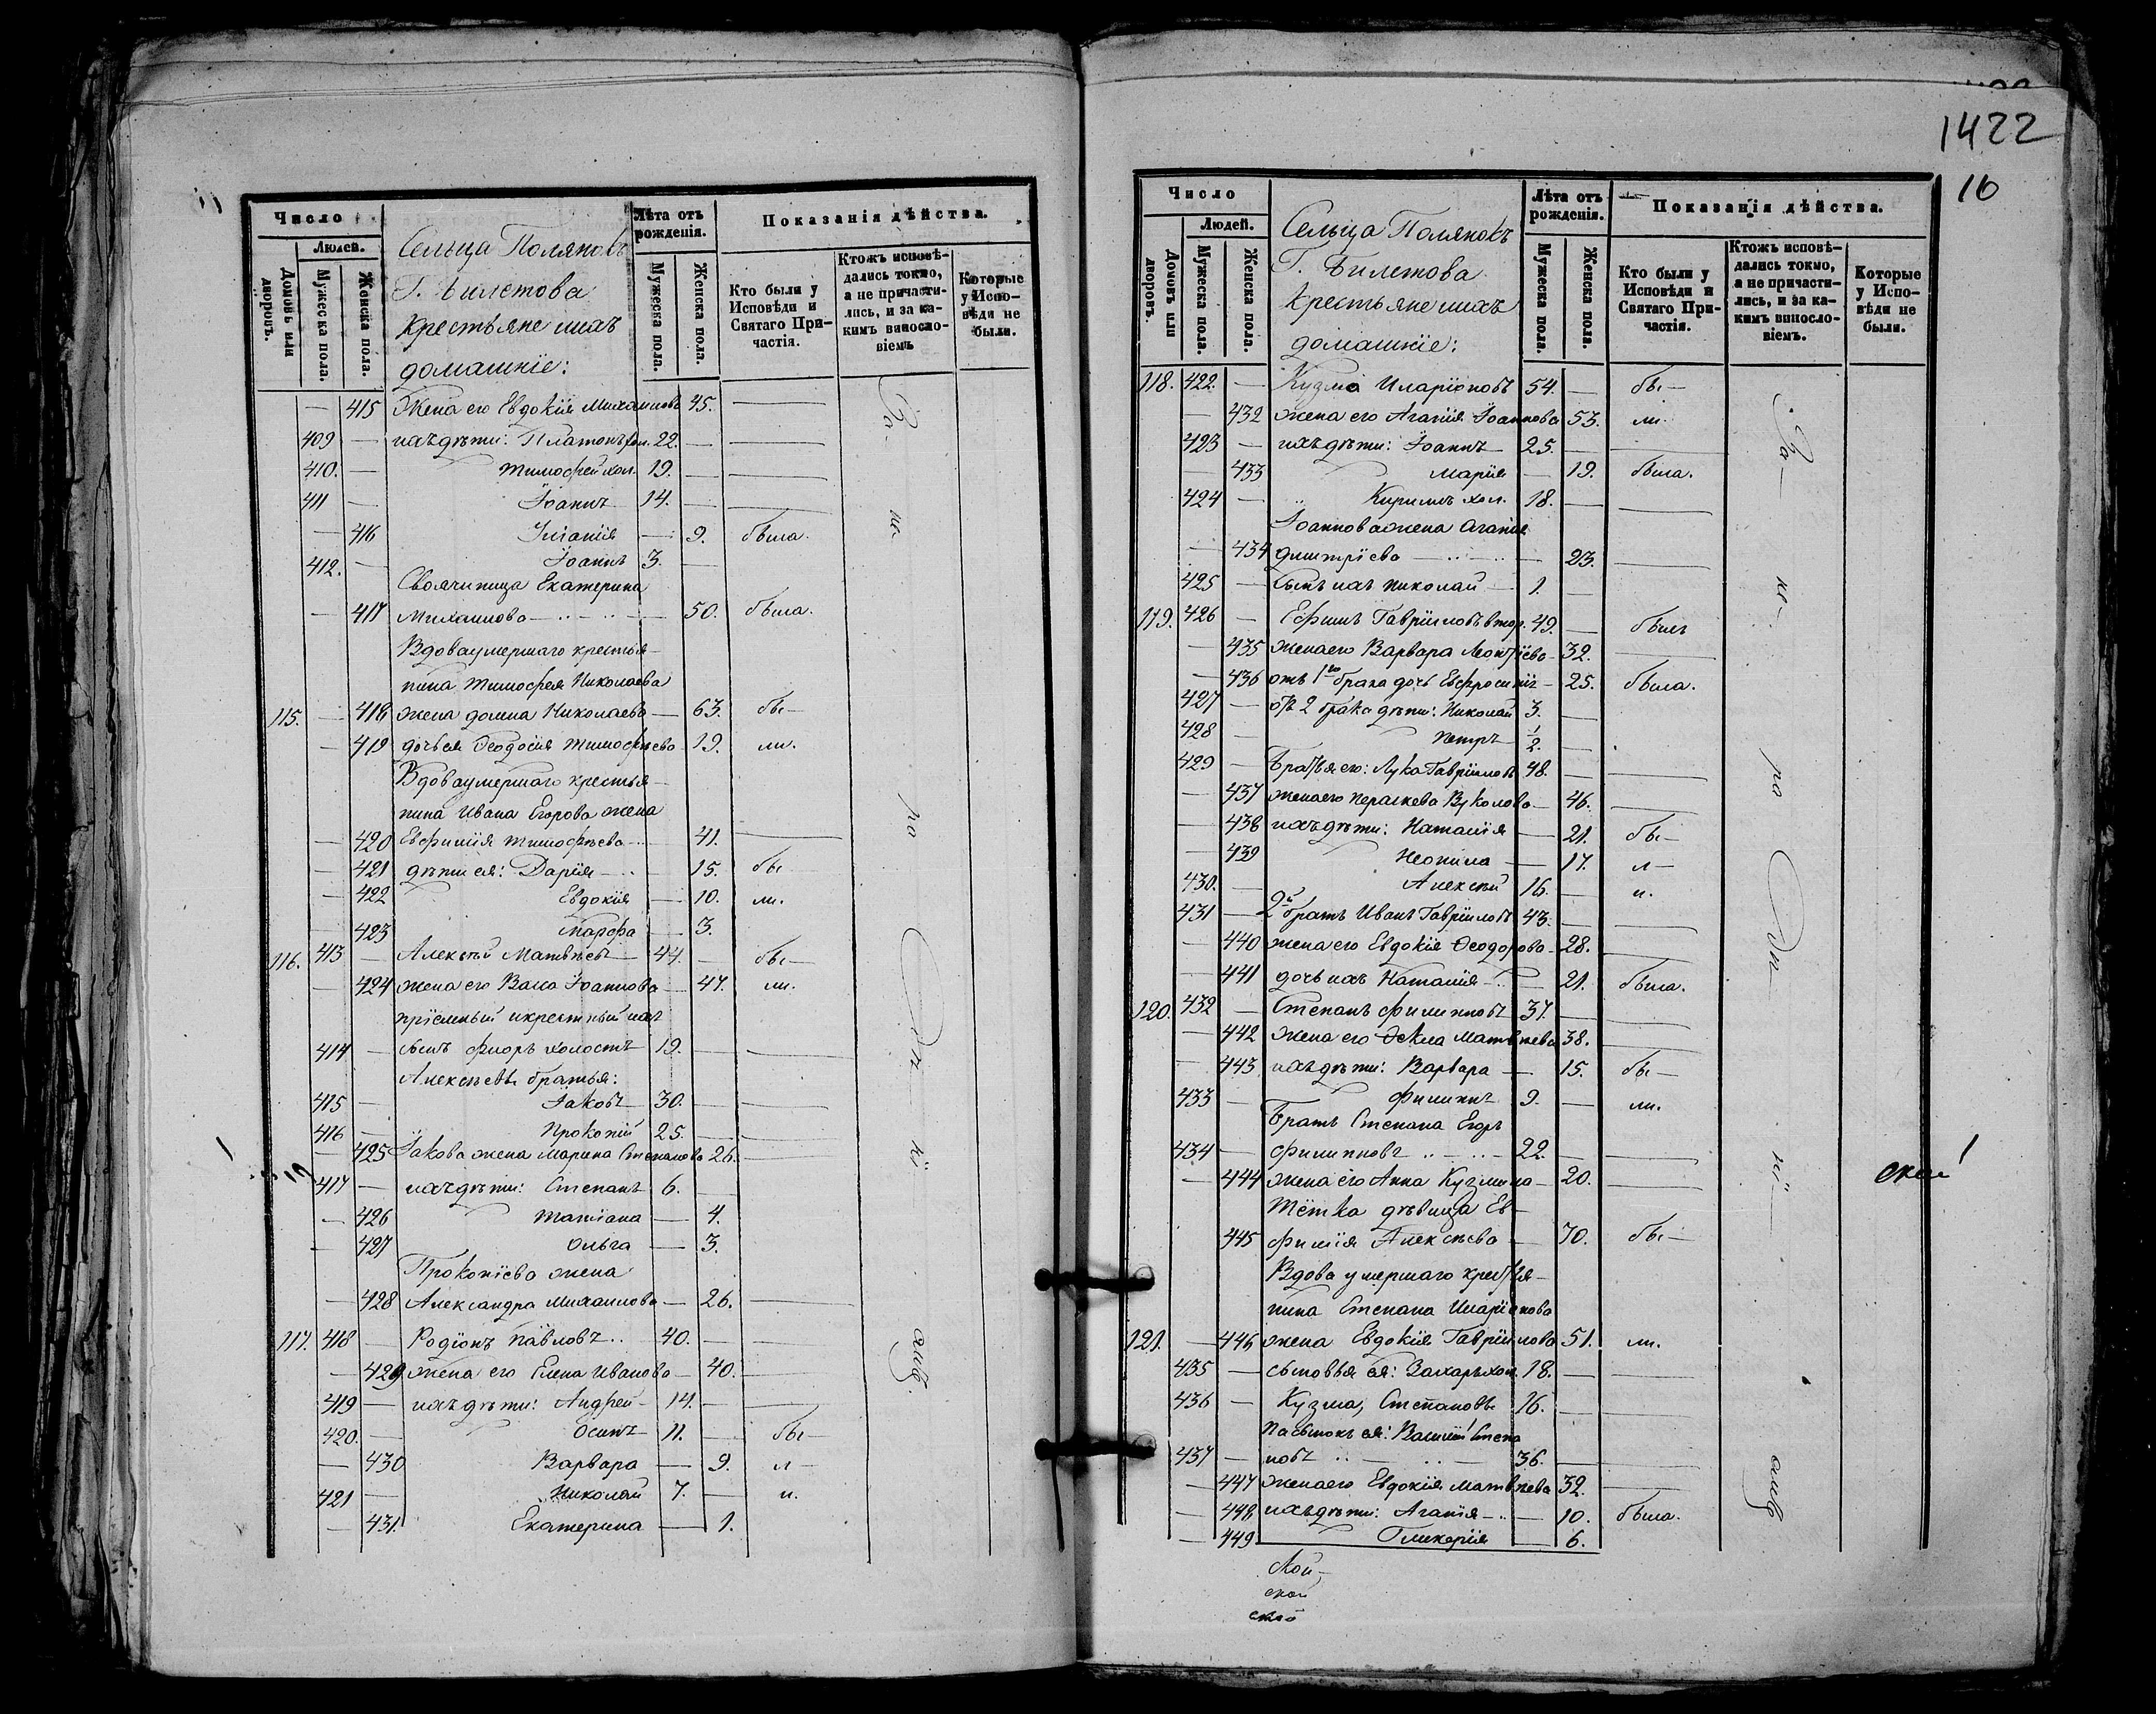 Число
Людей.
Домовъ или дворовъ.
Мужеска пола.
Женска пола.
Сельца Поляковъ
Г. Билетова
Крестьяне ихъ
домашніе:
Лѣта отъ рожденія.
Мужеска пола.
Женска пола.
Показанія дѣйства.
Кто были у Исповѣди и Святаго Причастія.
Ктожъ исповѣдались токмо, а не причастились, и за какимъ винословіемъ
Которые у Исповѣди не были.
— 415 Жена его Евдокія Михаилова 45. —
409 — ихъ дѣти: Платонъ хол. 22. — —
410. — Тимофей хол. 19. — —
411 — Іоаннъ 14. — —
— 416 Уліанія — 9. была.
412. — Іоаннъ 3. —
Своячиница Екатерина
— 417 Михаилова — 50. была.
Вдова умершаго крестья-
нина Тимофея Николаева
115. — 418 жена Домна Николаева — 63. бы-
— 419 дочь ея Ѳеодосія Тимофѣева 19. ли.
Вдова умершаго крестья-
нина Ивана Егорова жена
— 420 Евфимія Тимофѣева 41. —
— 421 дѣти ея: Дарія — 15. бы
— 422 Евдокія — 10. ли.
— 423 Марфа — 3.
116. 413 — Алексѣй Матвѣевъ 44. — бы-
— 424 жена его Васса Іоаннова — 47. ли.
пріемный и крестный ихъ
414 — сынъ Флоръ холостъ 19. — —
Алексѣевы братья:
415 — Іаковъ 30. — —
416 — Прокопій 25. — —
— 425 Іакова жена Марина Степанова 26. —
417 — ихъ дѣти: Степанъ 6. —
— 426 Татіана — 4.
— 427 Ольга — 3.
Прокопіева жена
— 428 Александра Михаилова — 26. —
117. 418 — Родіонъ Павловъ 40. — —
— 429 жена его Елена Иванова — 40. —
419 — ихъ дѣти: Андрей 14. — —
420. — Осипъ 11. — бы-
— 430 Варвара — 9. л-
421 — Николай 7. — и.
— 431. Екатерина — 1.
1422
16
Число
Людей.
Домовъ или дворовъ.
Мужеска пола.
Женска пола.
Сельца Поляковъ
Г. Билетова
Крестьяне ихъ
домашніе:
Лѣта отъ рожденія.
Мужеска пола.
Женска пола.
Показанія дѣйства.
Кто были у Исповѣди и Святаго Причастія.
Ктожъ исповѣдались токмо, а не причастились, и за какимъ винословіемъ.
Которые у Исповѣди не были.
118. 422 — Кузма Иларіоновъ 54. — бы-
— 432 жена его Агапія Іоаннова 53. ли.
423 — ихъ дѣти: Іоаннъ 25. — —
— 433 Марія — 19. была.
424 — Кириллъ хол. 18. — —
Іоаннова жена Агапія
— 434 Димитріева — 23. —
425 — сынъ ихъ Николай — 1. —
119. 426 — Ефимъ Гавріиловъ втор. 49. — былъ
— 435 жена его Варвара Леонтіева 32. —
— 436 отъ 1го брака дочь Евфросинія 25. была.
427 — отъ 2 брака дѣти: Николай 3. —
428 — Петръ 1/2. —
429 — Братья его: Лука Гавріиловъ 48. — —
— 437 жена его Параскева Вуколова 46. —
— 438 ихъ дѣти: Наталія — 21. бы-
— 439 Неонила — 17. л-
430. — Алексѣй 16. — и.
431 — 2й братъ Иванъ Гавріиловъ 43. — —
— 440 жена его Евдокія Ѳеодорова 28. —
— 441 дочь ихъ Наталія — 21. была.
120. 432 — Степанъ Филипповъ 37. — —
— 442 жена его Ѳекла Матвѣева 38. —
— 443 ихъ дѣти: Варвара — 15. бы-
433 — Филиппъ 9. — ли.
Братъ Степана Егоръ
434 — Филипповъ 22. — —
— 444 жена его Анна Кузмина 20. —
Тётка дѣвица Ев-
445 фимія Алексѣева — 70. бы-
Вдова умершаго крестья-
нина Степана Иларіонова
121. — 446 жена Евдокія Гавріилова 51. ли.
435 — сыновья ея: Захаръ хол. 18. — —
436 — Кузма, Степановы 16. — —
Пасынокъ ея: Василій Степа
437 — новъ 36. — —
— 447 жена его Евдокія Матвѣева 32. —
— 448 ихъ дѣти: Агапія — 10. была.
— 449 Гликерія — 6.
ской